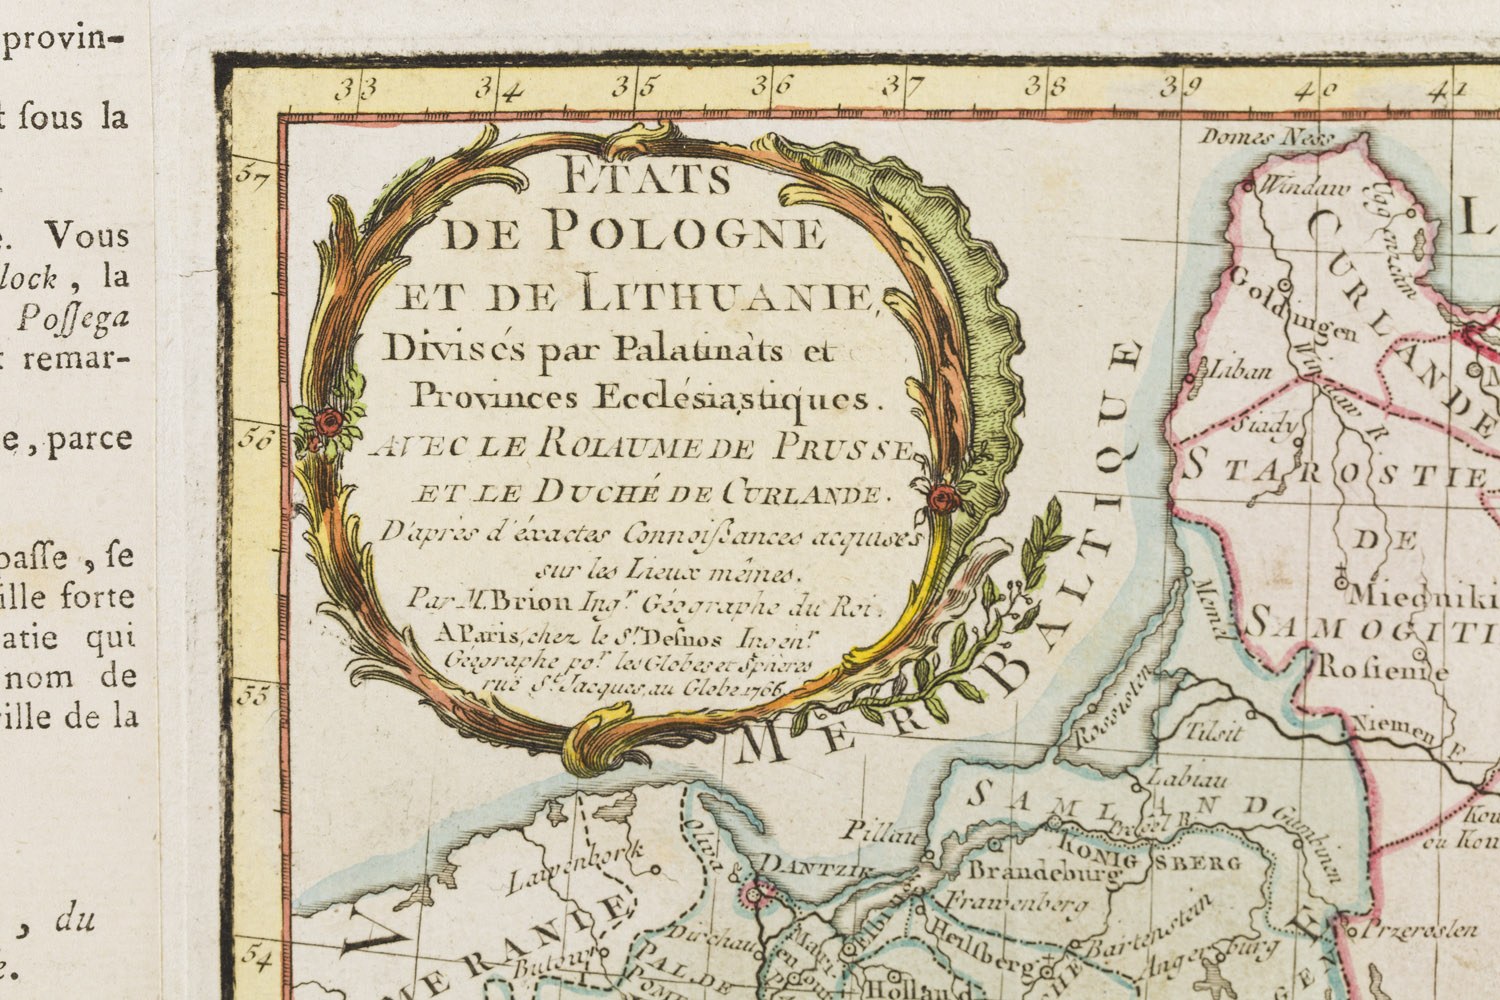 provin-
t ſous la
. Vous
lock, la
Poſſega
remar-
e, parce
paſſe, ſe
ille forte
atie qui
nom de
ville de la
, du
e.
33 34 35 36 37 38 39 40 41
57
56
55
54
ETATS
DE POLOGNE
ET DE LITHUANIE,
Divisés par Palatinàts et
Provinces Ecclésiastiques.
AVEC LE ROIAUME DE PRUSSE
ET LE DUCHÉ DE CURLANDE.
D'après d'éxactes Connoißances acquises
sur les Lieux mêmes.
Par M. Brion Ing.r Géographe du Roi.
A Paris, chez le S.r Desnos Ingen.r
Géographe po.r les Globes et Spheres
rue S.t Jacques, au Globe 1766.
MER BALTIQUE
Domes Ness
Windaw
CURLANDE
Goldingen
Windaw R
Liban
Siady
STAROSTIE
DE
Miedniki
SAMOGITI
Rosienne
Memel
Rossisten
Tilsit
Niemen
Labiau
SAMLAND
Pregel R
Gumbinen
Pillau
KONIGSBERG
Brandeburg
Frawenberg
Heilsberg
Bartenstein
Angerburg
Przeroslen
Lawenbork
Oliva
DANTZIK
Elbing
Dirchau
Butow
MERANIE
PAL DE
POME
Marien
Holland